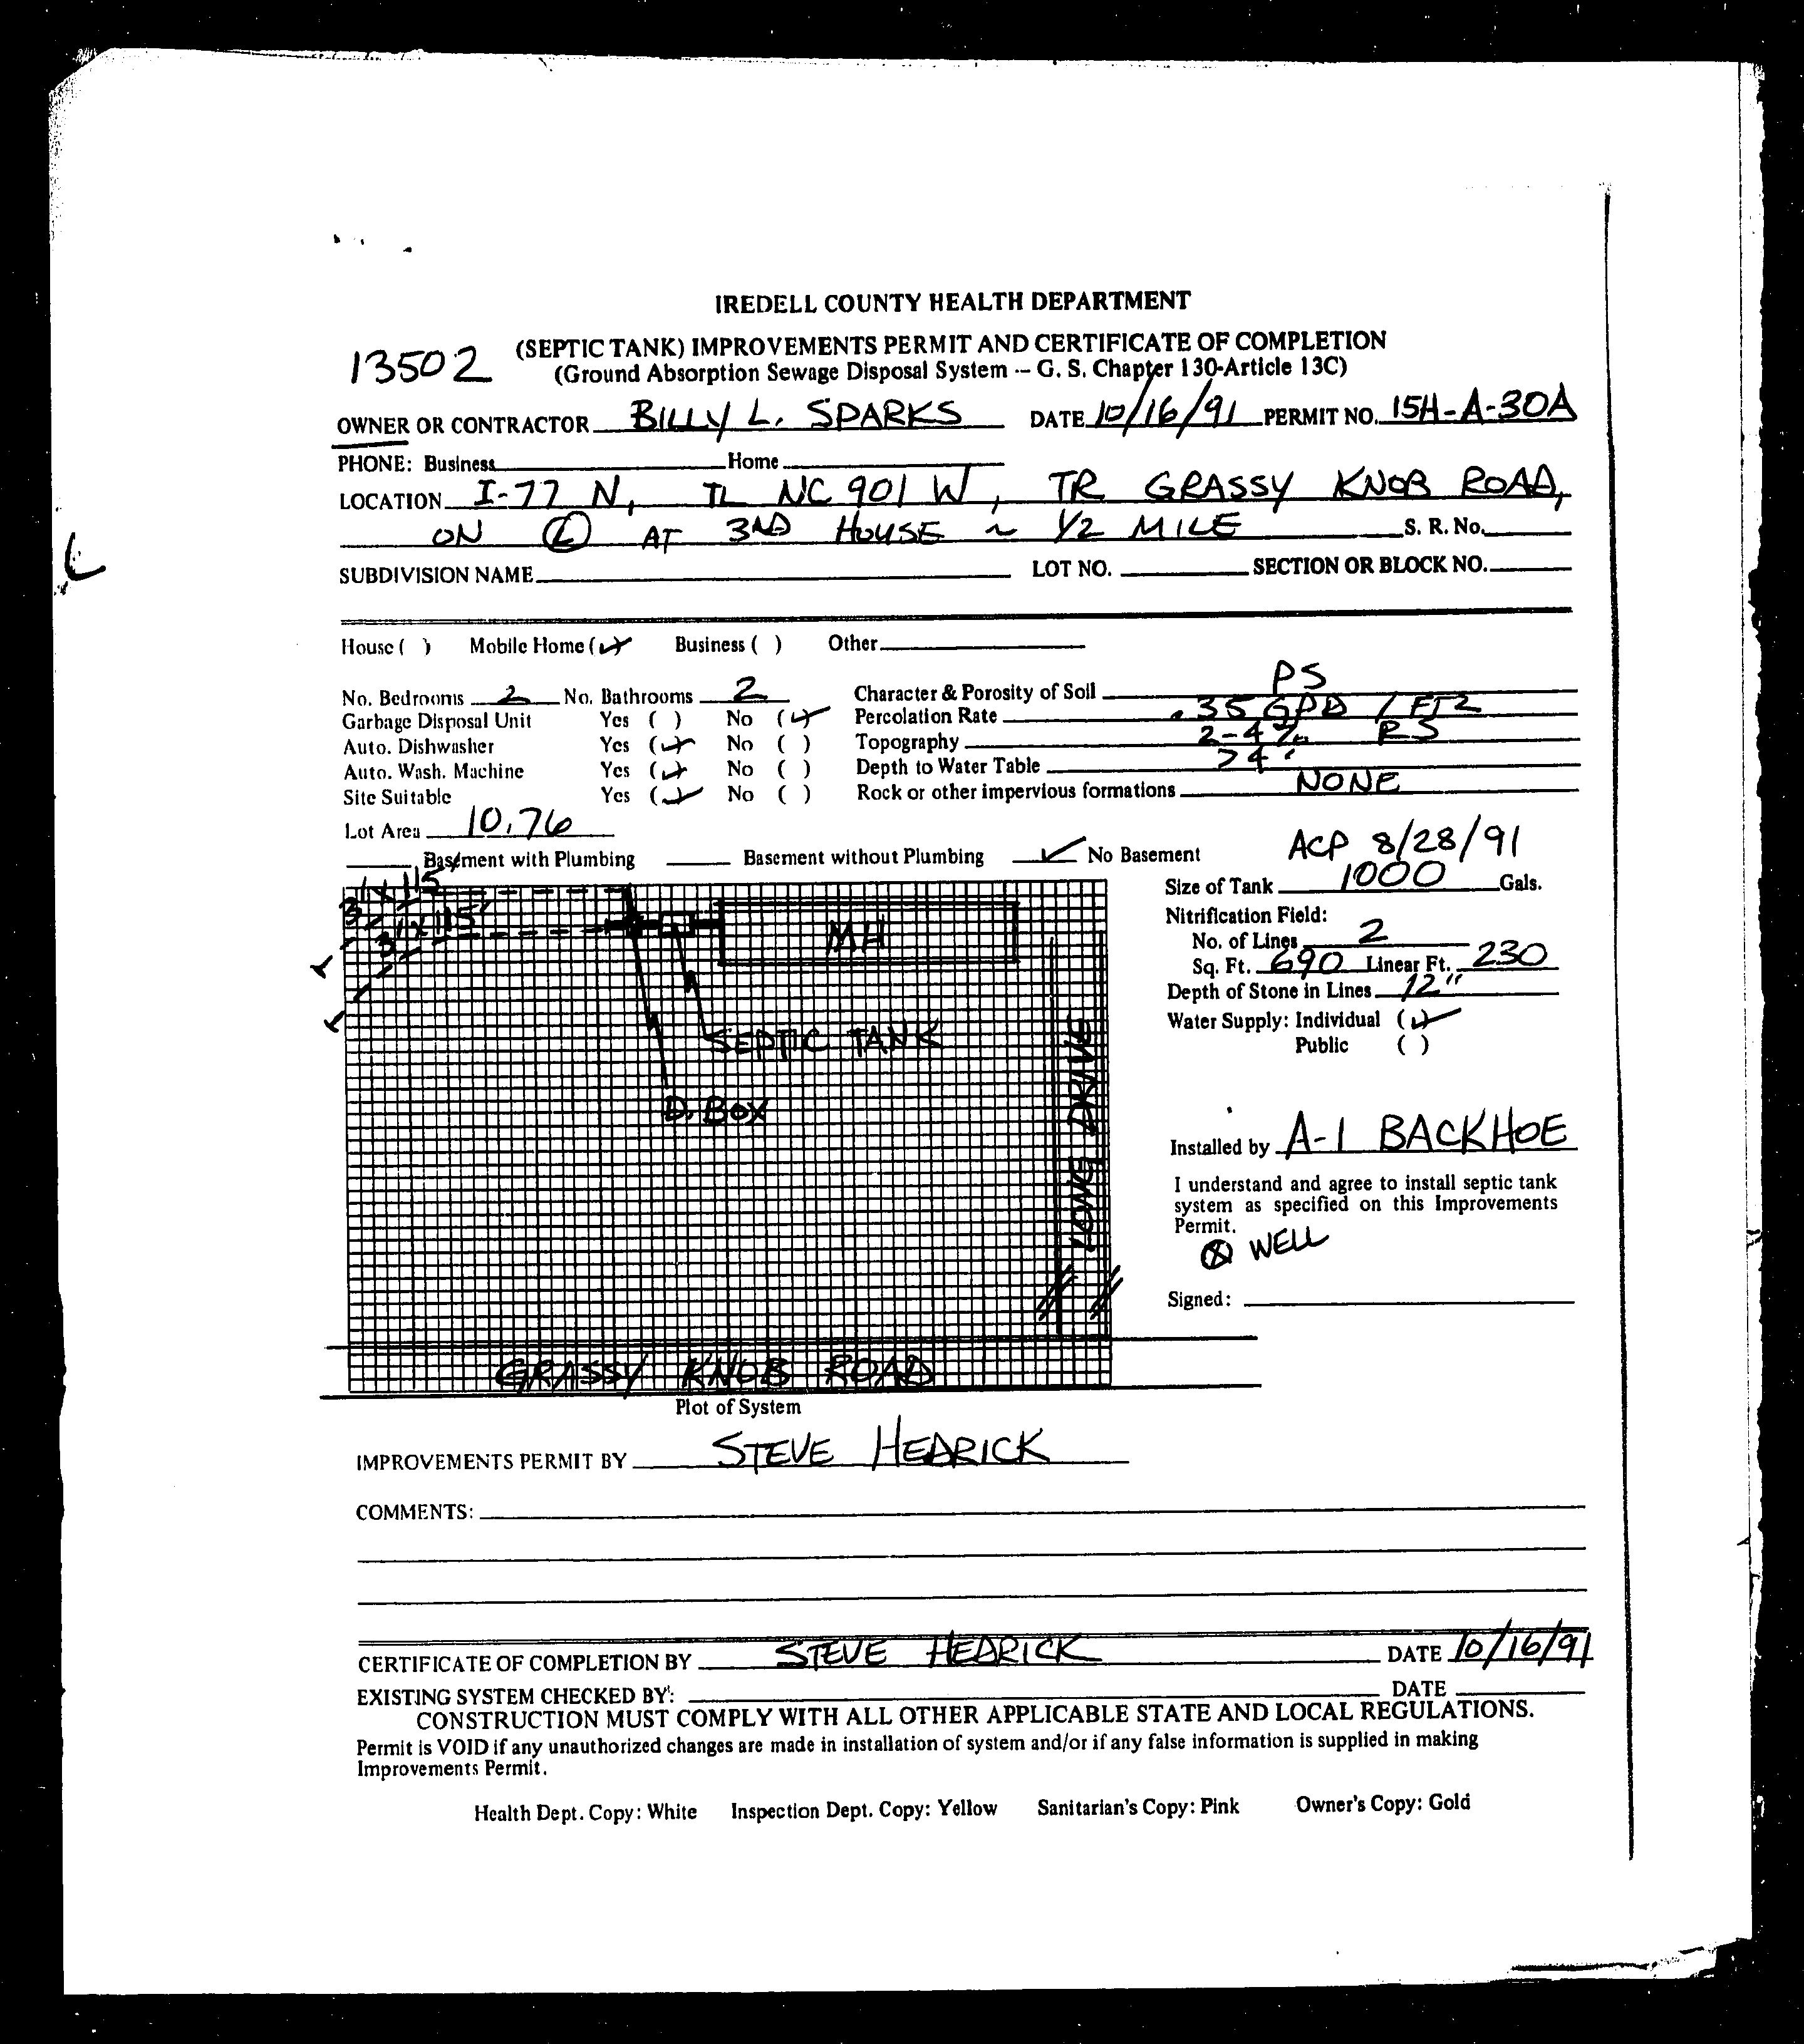 IREDELL COUNTY HEALTH DEPARTMENT
13502 (SEPTIC TANK) IMPROVEMENTS PERMIT AND CERTIFICATE OF COMPLETION
(Ground Absorption Sewage Disposal System -- G. S. Chapter 130-Article 13C)
OWNER OR CONTRACTOR BILLY L. SPARKS DATE 10/16/91 PERMIT NO. 15H-A-30A
PHONE: Business Home
LOCATION I-77 N, TL NC 901 W, TR GRASSY KNOB ROAD,
ON Ⓛ AT 3RD HOUSE ~ 1/2 MILE S. R. No.
SUBDIVISION NAME LOT NO. SECTION OR BLOCK NO.
House ( ) Mobile Home (✓) Business ( ) Other
No. Bedrooms 2 No. Bathrooms 2 Character & Porosity of Soil PS
Garbage Disposal Unit Yes ( ) No (✓) Percolation Rate .35 GPD / FT2
Auto. Dishwasher Yes (✓) No ( ) Topography 2-4% RS
Auto. Wash. Machine Yes (✓) No ( ) Depth to Water Table >4'
Site Suitable Yes (✓) No ( ) Rock or other impervious formations NONE
Lot Area 10.76
Basement with Plumbing Basement without Plumbing ✓ No Basement
ACP 8/28/91
Size of Tank 1000 Gals.
Nitrification Field:
No. of Lines 2
Sq. Ft. 690 Linear Ft. 230
Depth of Stone in Lines 12"
Water Supply: Individual (✓)
Public ( )
3' x 115'
3' x 115'
MH
SEPTIC TANK
D. BOX
LONG DRIVE
Installed by A-1 BACKHOE
I understand and agree to install septic tank
system as specified on this Improvements
Permit.
⊗ WELL
Signed:
GRASSY KNOB ROAD
Plot of System
IMPROVEMENTS PERMIT BY STEVE HEDRICK
COMMENTS:
CERTIFICATE OF COMPLETION BY STEVE HEDRICK DATE 10/16/91
EXISTING SYSTEM CHECKED BY: DATE
CONSTRUCTION MUST COMPLY WITH ALL OTHER APPLICABLE STATE AND LOCAL REGULATIONS.
Permit is VOID if any unauthorized changes are made in installation of system and/or if any false information is supplied in making
Improvements Permit.
Health Dept. Copy: White Inspection Dept. Copy: Yellow Sanitarian's Copy: Pink Owner's Copy: Gold